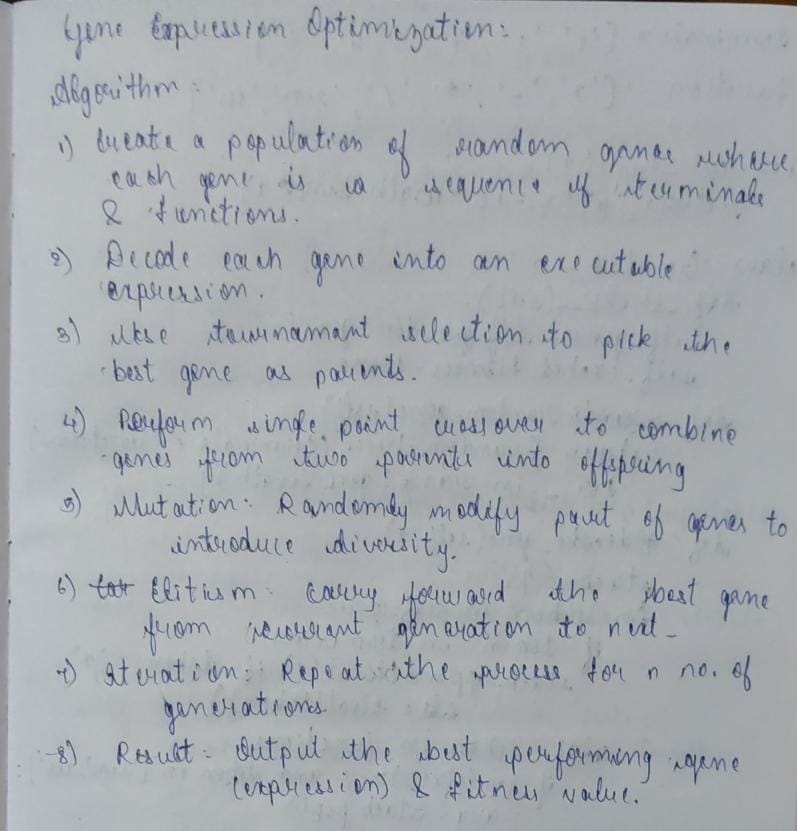 Gene Expression Optimization:
Algorithm:
1) Create a population of random genes where
each gene is a sequence of terminals
& functions.
2) Decode each gene into an executable
expression.
3) Use tournamant selection to pick the
best gene as parents.
4) Perform single point crossover to combine
genes from two parents into offspring
5) Mutation: Randomly modify part of genes to
introduce diversity.
6) Elitism: carry forward the best gene
from current generation to next
7) Iteration: Repeat the process for n no. of
generations
8) Result - Output the best performing gene
(expression) & fitness value.